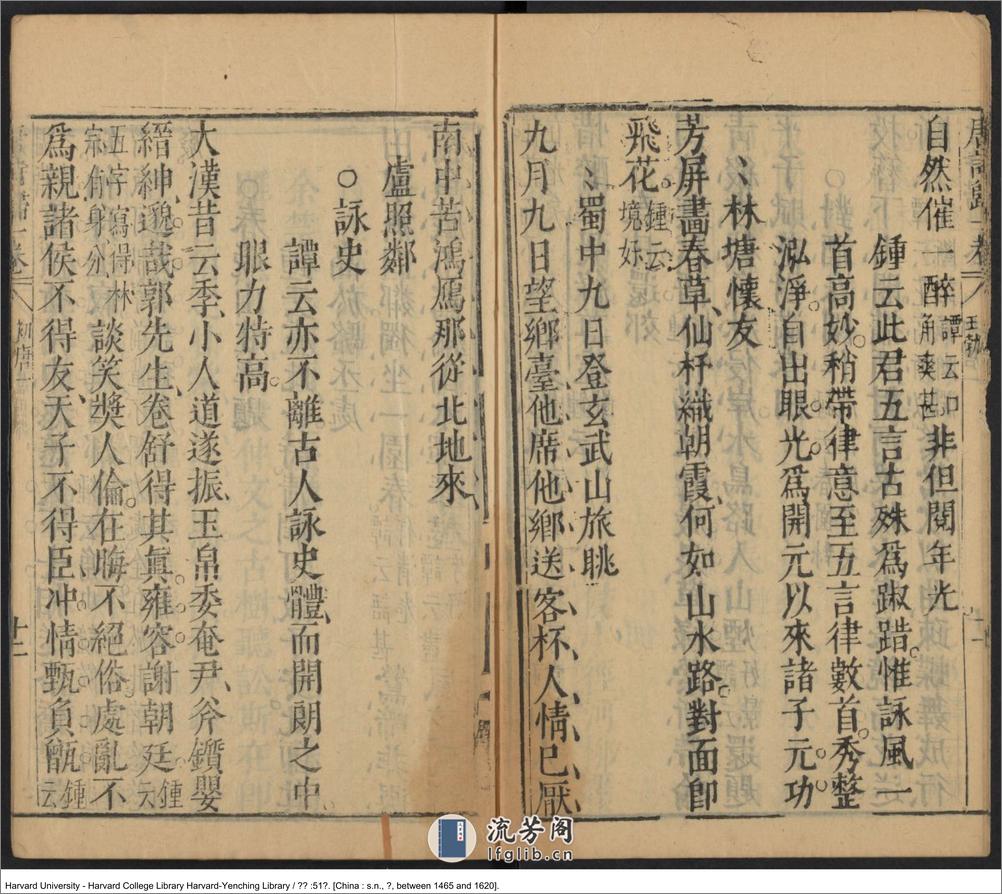 自然催一醉譚云口角爽甚非但閱年光
鍾云此君五言古殊爲踧踖惟詠風一
首高妙稍帶律意至五言律數首秀整
泓淨自出眼光爲開元以來諸子元功
林塘懷友
芳屏畫春草仙杼織朝霞何如山水路對面卽
飛花鍾云境好
蜀中九日登玄武山旅眺
九月九日望鄉臺他席他鄉送客杯人情已厭
南中苦鴻鴈那從北地來
盧照鄰
○詠史
譚云亦不離古人詠史體而開朗之中
眼力特高
大漢昔云季小人道遂振玉帛委奄尹斧鑕嬰
縉紳邈哉郭先生卷舒得其眞雍容謝朝廷鍾云
五字寫得林宗有身分談笑獎人倫在晦不絕俗處亂不
爲親諸侯不得友天子不得臣冲情甄負甑鍾云
唐詩歸一卷
初唐一
十二
流芳阁
lfglib.cn
Harvard University - Harvard College Library Harvard-Yenching Library / ?? :51?. [China : s.n., ?, between 1465 and 1620].